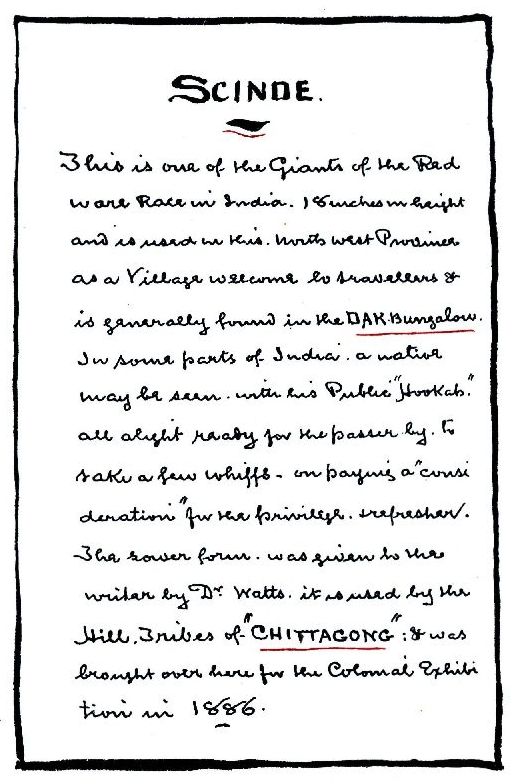 SCINDE.
This is one of the Giants of the Red
ware Race in India. 18 inches in height
and is used in this. North West Province
as a Village welcome to travellers &
is generally found in the DAK. Bungalow.
In some parts of India. a native
may be seen. with his Public "Hookah."
all alight ready for the passer by. to
take a few whiffs - on paying a "consi
deration" for the privilege. & refresher.
The lower form. was given to the
writer by Dr Watts. it is used by the
Hill. Tribes of "CHITTAGONG": & was
brought over here for the Colonial Exhibi
tion in 1886.